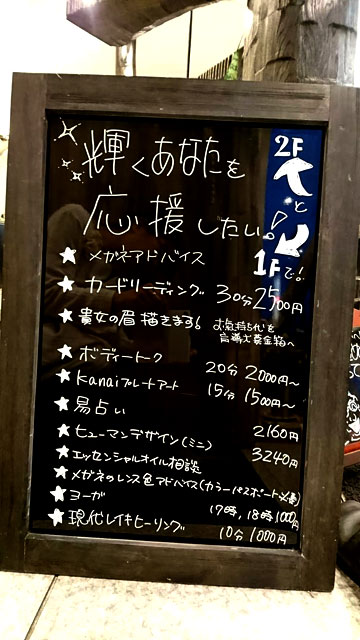 輝くあなたを
応援したい!
2F
と
1Fで!
★メガネアドバイス
★カードリーディング 30分2500円
★貴女の眉描きます! お気持ち代を
盲導犬募金箱へ
★ボディートーク 20分 2000円～
★Kanaiプレートアート 15分 1500円～
★易占い
★ヒューマンデザイン(ミニ) 2160円
★エッセンシャルオイル相談 3240円
★メガネのレンズ色アドバイス(カラーパスポート必要)
★ヨーガ 17時,18時 1000円
★現代レイキヒーリング 10分 1000円